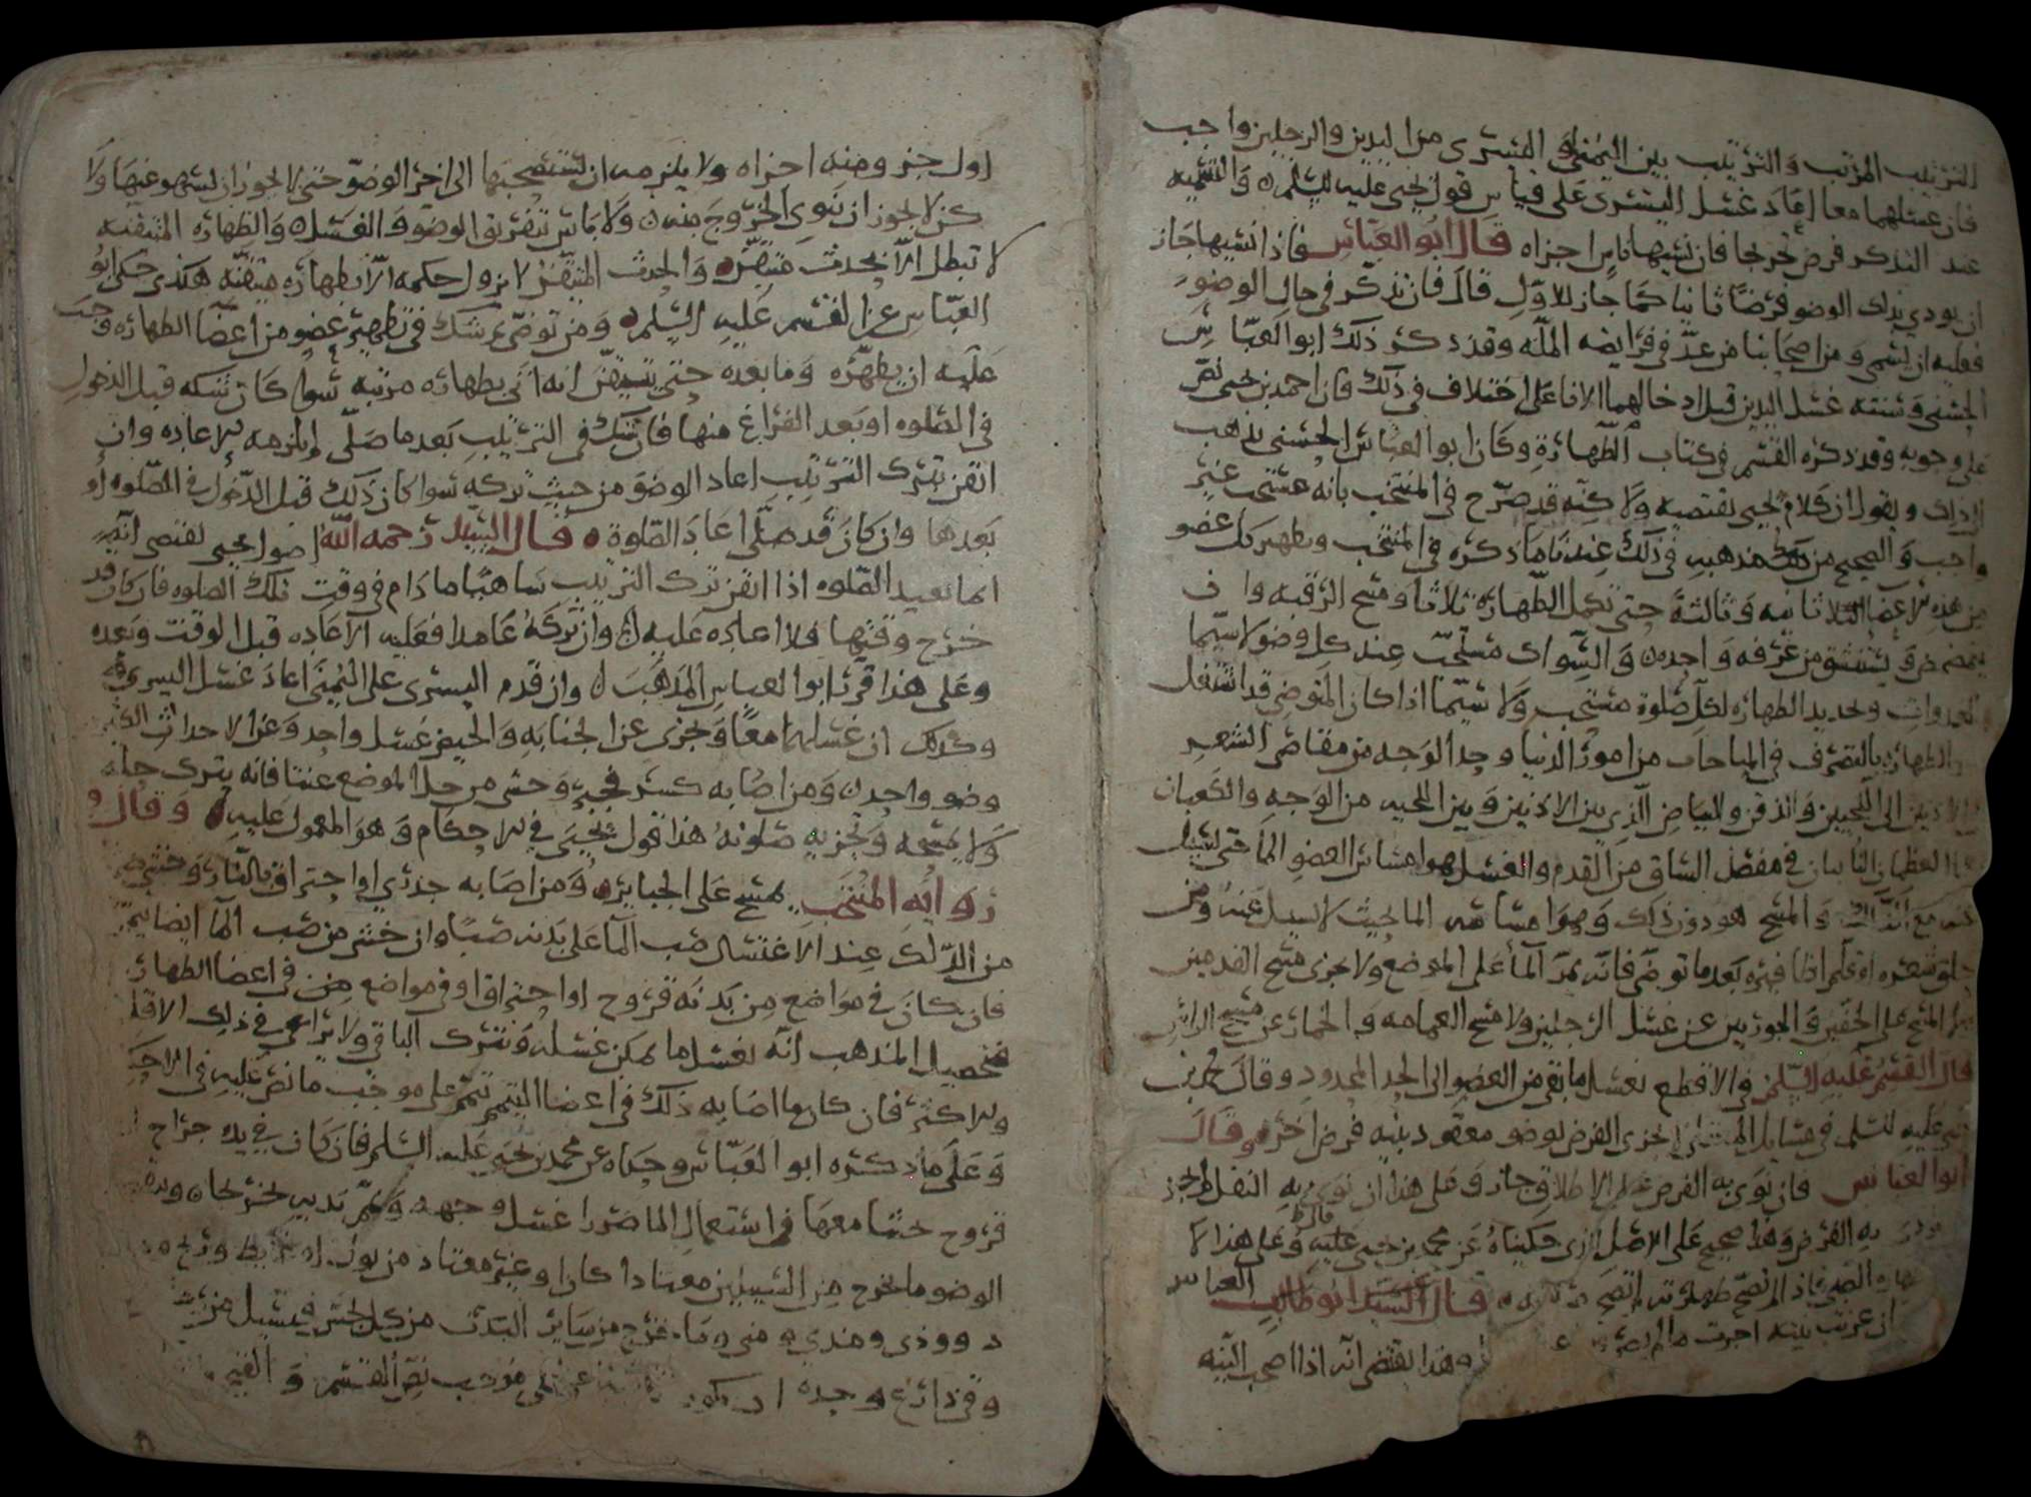 الترتيب المرتب والترتيب بين اليمنى و اليسرى من اليدين والرجلين واجب
فان غسلهما معا اعاد غسل اليسرى على قياس قول يحيى عليه السلم والتسميه
عند الذكر فرض فان نسيها ناس اجزاه قال ابو العباس فاذا نسيها جاز
ان يودي بذلك الوضو فرضا ثانيا كما جاز للاول قال فان تذكر في حال الوضو
فعليه ان يسمي ومن اصحابنا من عد في فرايضه الملة وقد ذكر ذلك ابو العباس
الحسني وسننه غسل اليدين قبل ادخالهما الانا على اختلاف في ذلك فان احمد بن يحيى نص
على وجوبه وقد ذكره القسم في كتاب الطهارة وكان ابو العباس الحسني يذهب
الى ذلك ويقول ان كلام يحيى يقتضيه ولاكنه قد صرح في المنتخب بانه مستحب غير
واجب والصحيح من مذهبه في ذلك عندنا ما ذكره في المنتخب وتطهير كل عضو
من هذه الاعضا ثانيه وثالثة حتى تكمل الطهارة ثلاثا ومسح الرقبه وان
يتمضمض ويستنشق من غرفه واحده والسواك مستحب عند كل وضو لا سيما
الغدوات وتجديد الطهاره لكل صلوة مستحب ولا سيما اذا كان المتوضي قد اشتغل
بعد الطهاره بالتصرف في المباحات من امور الدنيا وحد الوجه من مقاص الشعر
الى الاذنين الى اللحيين والذقن والبياض الذي بين الاذنين وبين اللحيه من الوجه والكعبان
هما العظمان الناتيان في مفصل الساق من القدم والغسل هو امساس العضو الما حتى يسيل
عنه مع الدلك والمسح هو دون ذلك وهو امساسه الما بحيث لا يسيل عنه ومن
حلق شعره او قلم اظافيره بعد ما توضى فانه يمر الما على الموضع ولا يجزي مسح القدمين
ولا المسح على الخفين والجوربين عن غسل الرجلين ولا مسح العمامه والخمار عن مسح الراس
قال القسم عليه السلم في الاقطع يغسل ما بقي من العضو الى الحد المحدود وقال محمد بن
يحيى عليه السلم في مسايل يجزي الفرض لوضو معقود بنيه فرض اخر وقال
ابو العباس فان نوى به الفرض على الاطلاق جاز وعلى هذا ان نوى به النفل لم يجز
به الفرض وهذا صحيح على الاصل الذي حكيناه عن محمد بن يحيى عليه وعلى هذا لا
قال السيد ابو طالب العباس
ان عزبت نيته اجزت ما لم
هذا يقتضي انه اذا اصحب النيه
اول جزو منه اجزاه ولا يلزمه ان يستصحبها الى اخر الوضو حتى لا يجوز ان يسهو عنها ولا
كن لا يجوز ان نوى الخروج منه ولا باس بتفريق الوضو والغسل والطهاره المتيقنه
لا تبطل الا بحدث متيقن والحدث المتيقن لا يزول حكمه الا بطهاره متيقنه هكذى حكى ابو
العباس عن القسم عليه السلم ومن توضى ثم شك في تطهير عضو من اعضا الطهاره وجب
عليه ان يطهره وما بعده حتى يتيقن انه اتى بطهاره مرتبه سوا كان شكه قبل الدخول
في الصلوه او بعد الفراغ منها فان شك في الترتيب بعد ما صلى لم يلزمه الاعاده وان
ايقن بترك الترتيب اعاد الوضو من حيث تركه سوا كان ذلك قبل الدخول في الصلوه او
بعدها وان كان قد صلى اعاد الصلوة قال السيد رحمه الله اصول يحيى تقتضي انه
انما يعيد الصلوه اذا ايقن ترك الترتيب ساهيا ما دام في وقت تلك الصلوه فان كان قد
خرج وقتها فلا اعاده عليه وان تركه عامدا فعليه الاعاده قبل الوقت وبعده
وعلى هذا قرر ابو العباس المذهب وان قدم اليسرى على اليمنى اعاد غسل اليسرى
وكذلك ان غسلهما معا ويجزي عن الجنابه والحيض غسل واحد وعن الاحداث الكثيره
وضو واحد ومن اصابه كسر فجبره وخشي من حل الموضع عنتا فانه يترك حله
ولا يمسحه وتجزيه صلوته هذا قول يحيى في الاحكام وهو المعمول عليه وقال في
رواية المنتخب يمسح على الجباير ومن اصابه جدري او احتراق بالنار وخشي
من الدلك عند الاغتسال صب الما على بدنه صبا وان خشي من صب الما ايضا تيمم
فان كان في مواضع من بدنه قروح او احتراق او في مواضع من اعضا الطهاره
فتحصيل المذهب انه يغسل ما يمكن غسله ويترك الباقي ولا يراعى في ذلك الاقل
والاكثر فان كان ما اصابه ذلك في اعضا التيمم تيمم على موجب ما نص عليه في الاحكام
وعلى ما ذكره ابو العباس وحكاه عن محمد بن يحيى عليه السلم فان كان في يديه جراح او
قروح خشا معها في استعمال الما ضررا غسل وجهه ويمم يديه
الوضو ما يخرج من السبيلين معتادا كان او غير معتاد من بول او غايط وريح
ودود وودي ومذي ومني وما خرج من ساير البدن من كل نجس فيسيل من
وقي ذارع وحده ان يكون على موجب نص القسم و